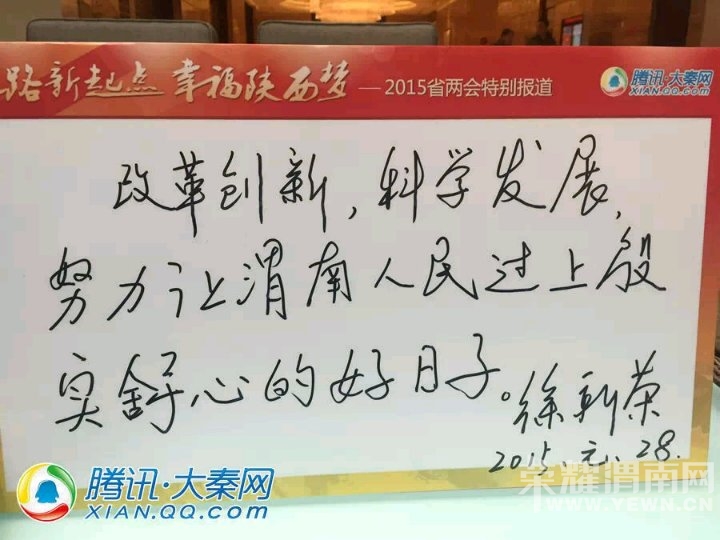 路新起点 幸福陕西梦 —2015省两会特别报道
腾讯·大秦网
XIAN.QQ.COM
改革创新，科学发展，
努力让渭南人民过上殷
实舒心的好日子。
徐新荣
2015.元.28.
腾讯·大秦网
XIAN.QQ.COM
荣耀渭南网
WWW.YEWN.CN